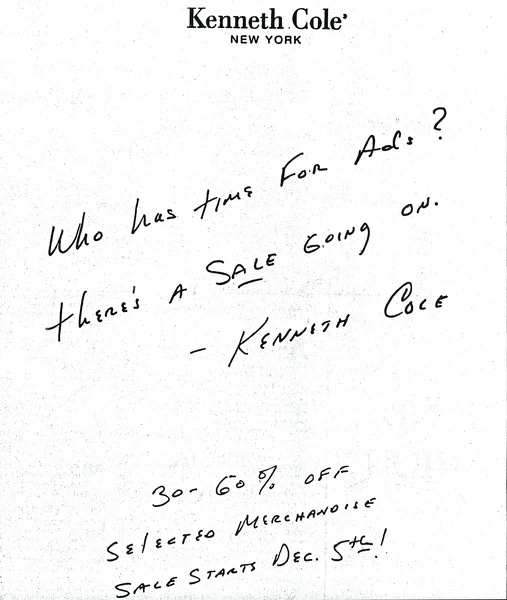 Kenneth Cole
NEW YORK
Who has time For Ads?
there's A SALE GOING ON.
- KENNETH COLE
30-60% OFF
SElECTED MERCHANDISE
SALE STARTS DEC. 5th!